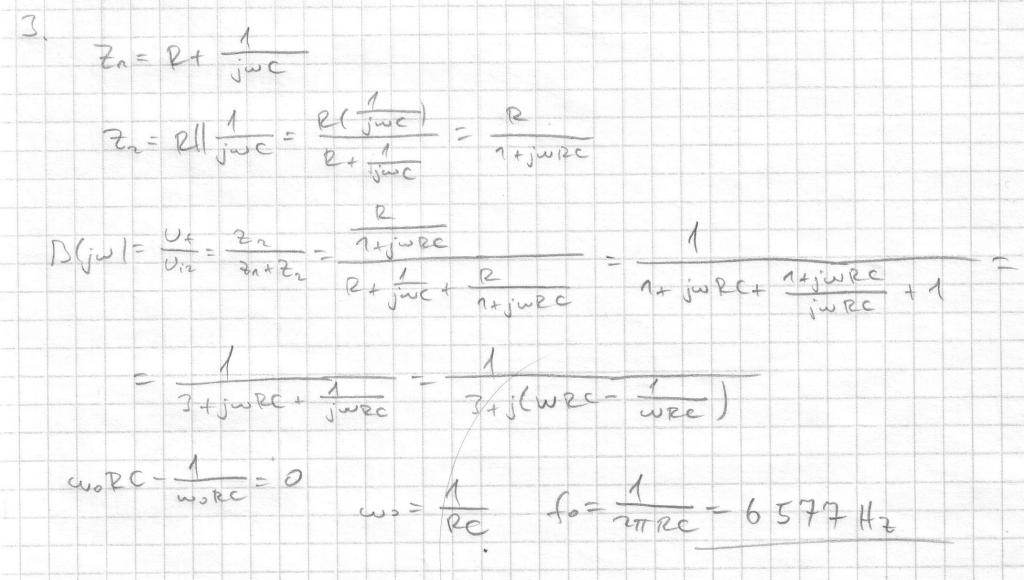 3.
Z₁ = R + 1/(jωC)
Z₂ = R || 1/(jωC) = R(1/(jωC)) / (R + 1/(jωC)) = R/(1+jωRC)
B(jω) = Uf/Uiz = Z₂/(Z₁+Z₂) = (R/(1+jωRC)) / (R + 1/(jωC) + R/(1+jωRC)) = 1/(1+jωRC + (1+jωRC)/(jωRC) + 1) =
= 1/(3+jωRC + 1/(jωRC)) = 1/(3+j(ωRC - 1/(ωRC)))
ω₀RC - 1/(ω₀RC) = 0
ω₀ = 1/(RC) f₀ = 1/(2πRC) = 6577 Hz